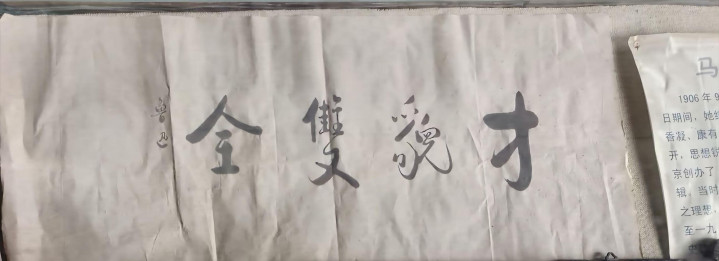 才貌雙全
鲁迅
马
1906年9
日期间，她结
香凝、康有
开，思想
京创办了
辑。当时
之理想
至一九